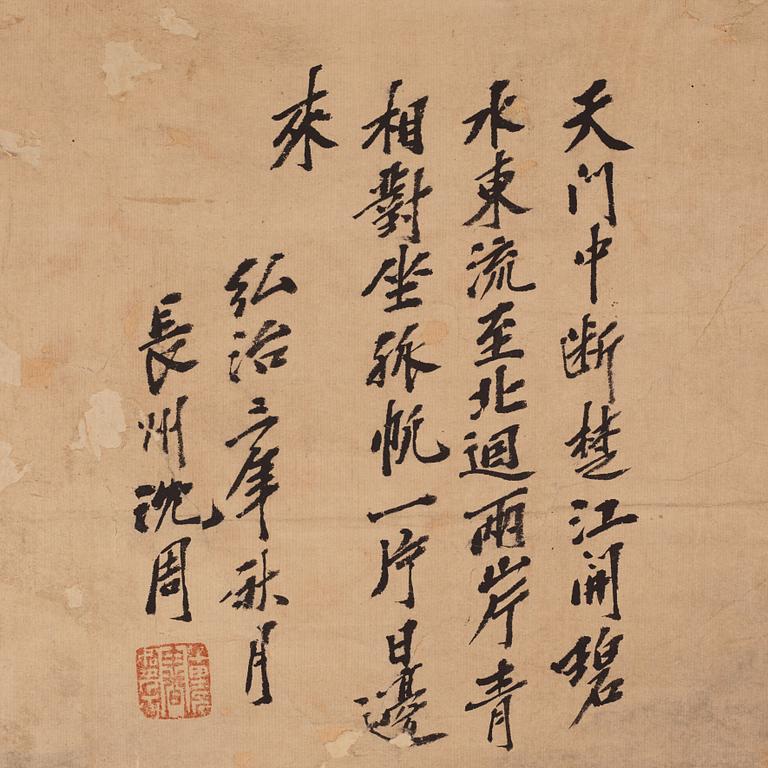 天門中断楚江開碧
水東流至北迴兩岸青
相對坐孤帆一片日邊
來
弘治三年秋月
長州沈周